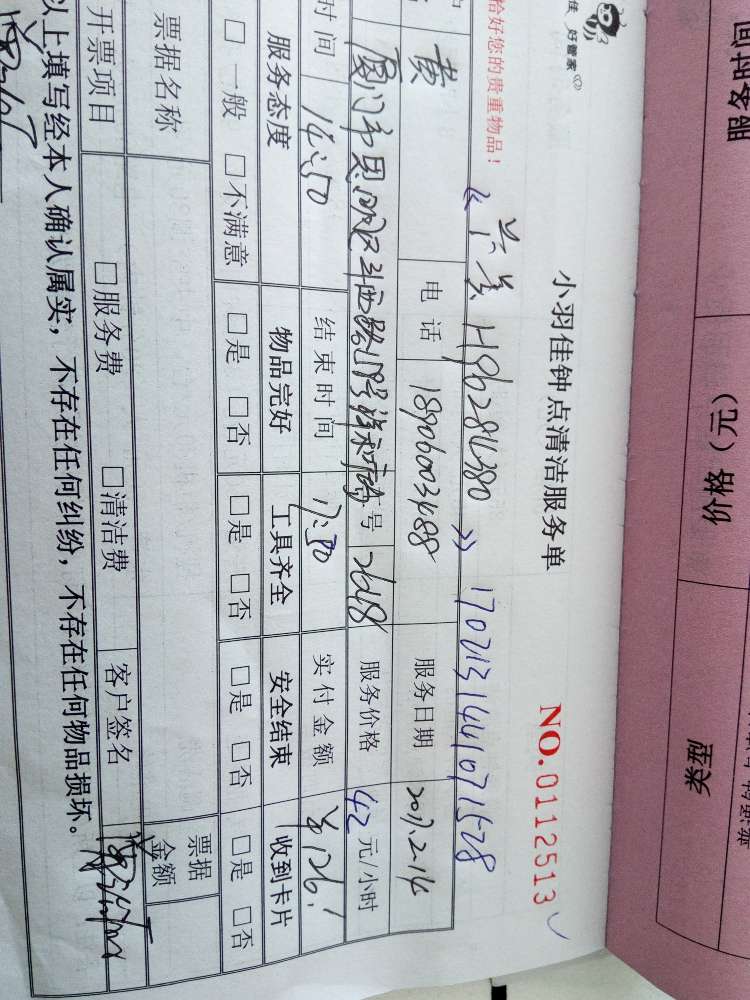 佳 好管家
小羽佳钟点清洁服务单
NO.0112513
您的贵重物品！
》 1702131441071528
黄 电话 18906003488 服务日期 2017.2.14
厦门市思明区斗西路 号 服务价格 42 元/小时
时间 14:50 结束时间 17:50 实付金额 ¥126!
服务态度 物品完好 工具齐全 安全结束 收到卡片
□ 一般 □ 不满意 □是 □否 □是 □否 □是 □否 □是 □否
票据名称 票据金额
开票项目 □服务费 □清洁费 客户签名
以上填写经本人确认属实，不存在任何纠纷，不存在任何物品损坏。
服务时间 价格（元） 类型